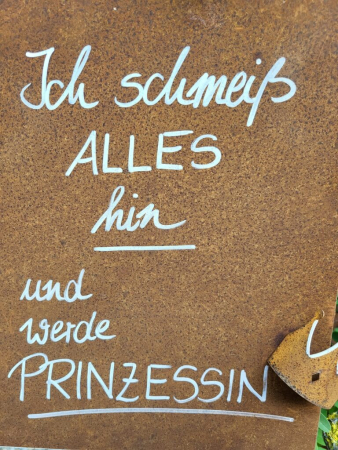 Ich schmeiß
ALLES
hin
und
werde
PRINZESSIN